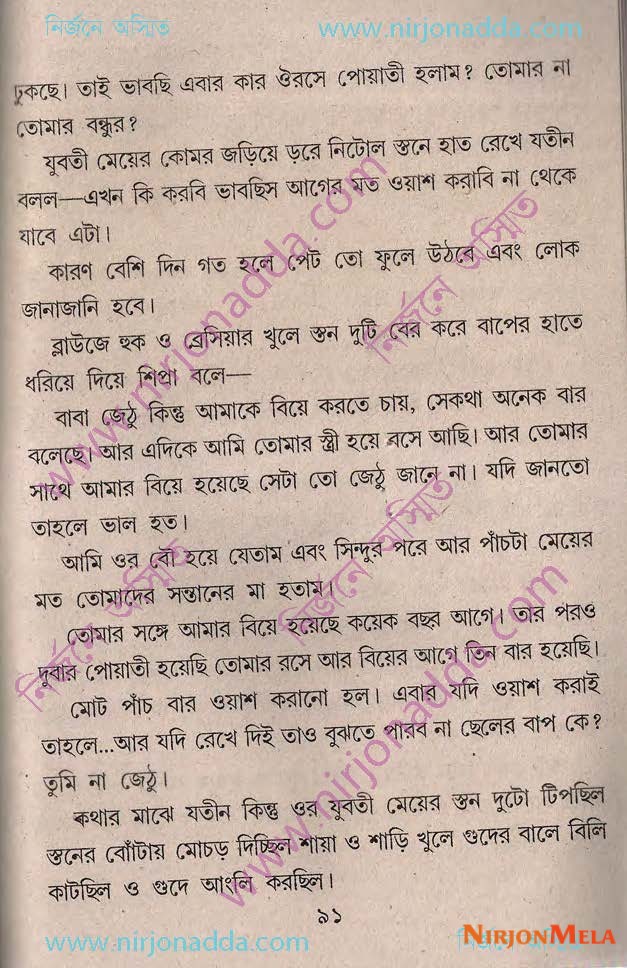 নির্জনে অস্মিত www.nirjonadda.com
ঢুকছে। তাই ভাবছি এবার কার ঔরসে পোয়াতী হলাম? তোমার না
তোমার বন্ধুর?
যুবতী মেয়ের কোমর জড়িয়ে ড়রে নিটোল স্তনে হাত রেখে যতীন
বলল—এখন কি করবি ভাবছিস আগের মত ওয়াশ করাবি না থেকে
যাবে এটা।
কারণ বেশি দিন গত হলে পেট তো ফুলে উঠবে এবং লোক
জানাজানি হবে।
ব্লাউজে হুক ও ব্রেসিয়ার খুলে স্তন দুটি বের করে বাপের হাতে
ধরিয়ে দিয়ে শিপ্রা বলে—
বাবা জেঠু কিন্তু আমাকে বিয়ে করতে চায়, সেকথা অনেক বার
বলেছে। আর এদিকে আমি তোমার স্ত্রী হয়ে বসে আছি। আর তোমার
সাথে আমার বিয়ে হয়েছে সেটা তো জেঠু জানে না। যদি জানতো
তাহলে ভাল হত।
আমি ওর বৌ হয়ে যেতাম এবং সিন্দুর পরে আর পাঁচটা মেয়ের
মত তোমাদের সন্তানের মা হতাম।
তোমার সঙ্গে আমার বিয়ে হয়েছে কয়েক বছর আগে। তার পরও
দুবার পোয়াতী হয়েছি তোমার রসে আর বিয়ের আগে তিন বার হয়েছি।
মোট পাঁচ বার ওয়াশ করানো হল। এবার যদি ওয়াশ করাই
তাহলে...আর যদি রেখে দিই তাও বুঝতে পারব না ছেলের বাপ কে?
তুমি না জেঠু।
কথার মাঝে যতীন কিন্তু ওর যুবতী মেয়ের স্তন দুটো টিপছিল
স্তনের বোঁটায় মোচড় দিচ্ছিল শায়া ও শাড়ি খুলে গুদের বালে বিলি
কাটছিল ও গুদে আংলি করছিল।
৯১
www.nirjonadda.com NIRJONMELA